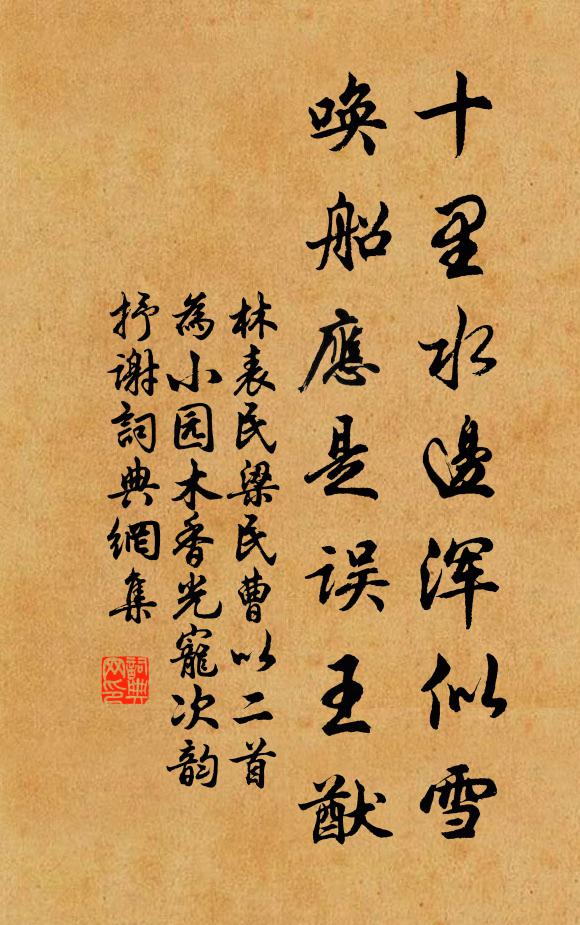 十里水邊浑似雪
唤船應是误王猷
林表民梁民曹以二首
為小园木香光寵次韵
抒谢詞典網集
詞典
网印